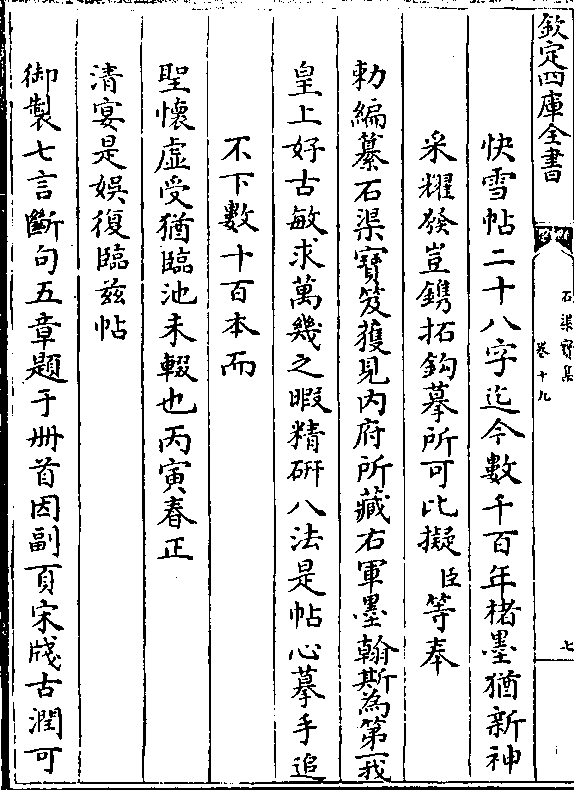 欽定四庫全書
石渠寶笈
卷十九
七
快雪帖二十八字迄今數千百年楮墨猶新神
采耀發豈鐫拓鈎摹所可比擬臣等奉
勅編纂石渠寶笈獲見内府所藏右軍墨翰斯為第一我
皇上好古敏求萬幾之暇精研八法是帖心摹手追
不下數十百本而
聖懷虛受猶臨池未輟也丙寅春正
清宴是娯復臨兹帖
御製七言斷句五章題于册首因副頁宋牋古潤可